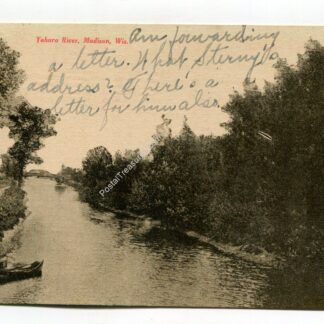 Yahara River, Madison, Wis.
Am forwarding
a letter. What Sterny's
address? There's a
letter for him also
PostalTreasures